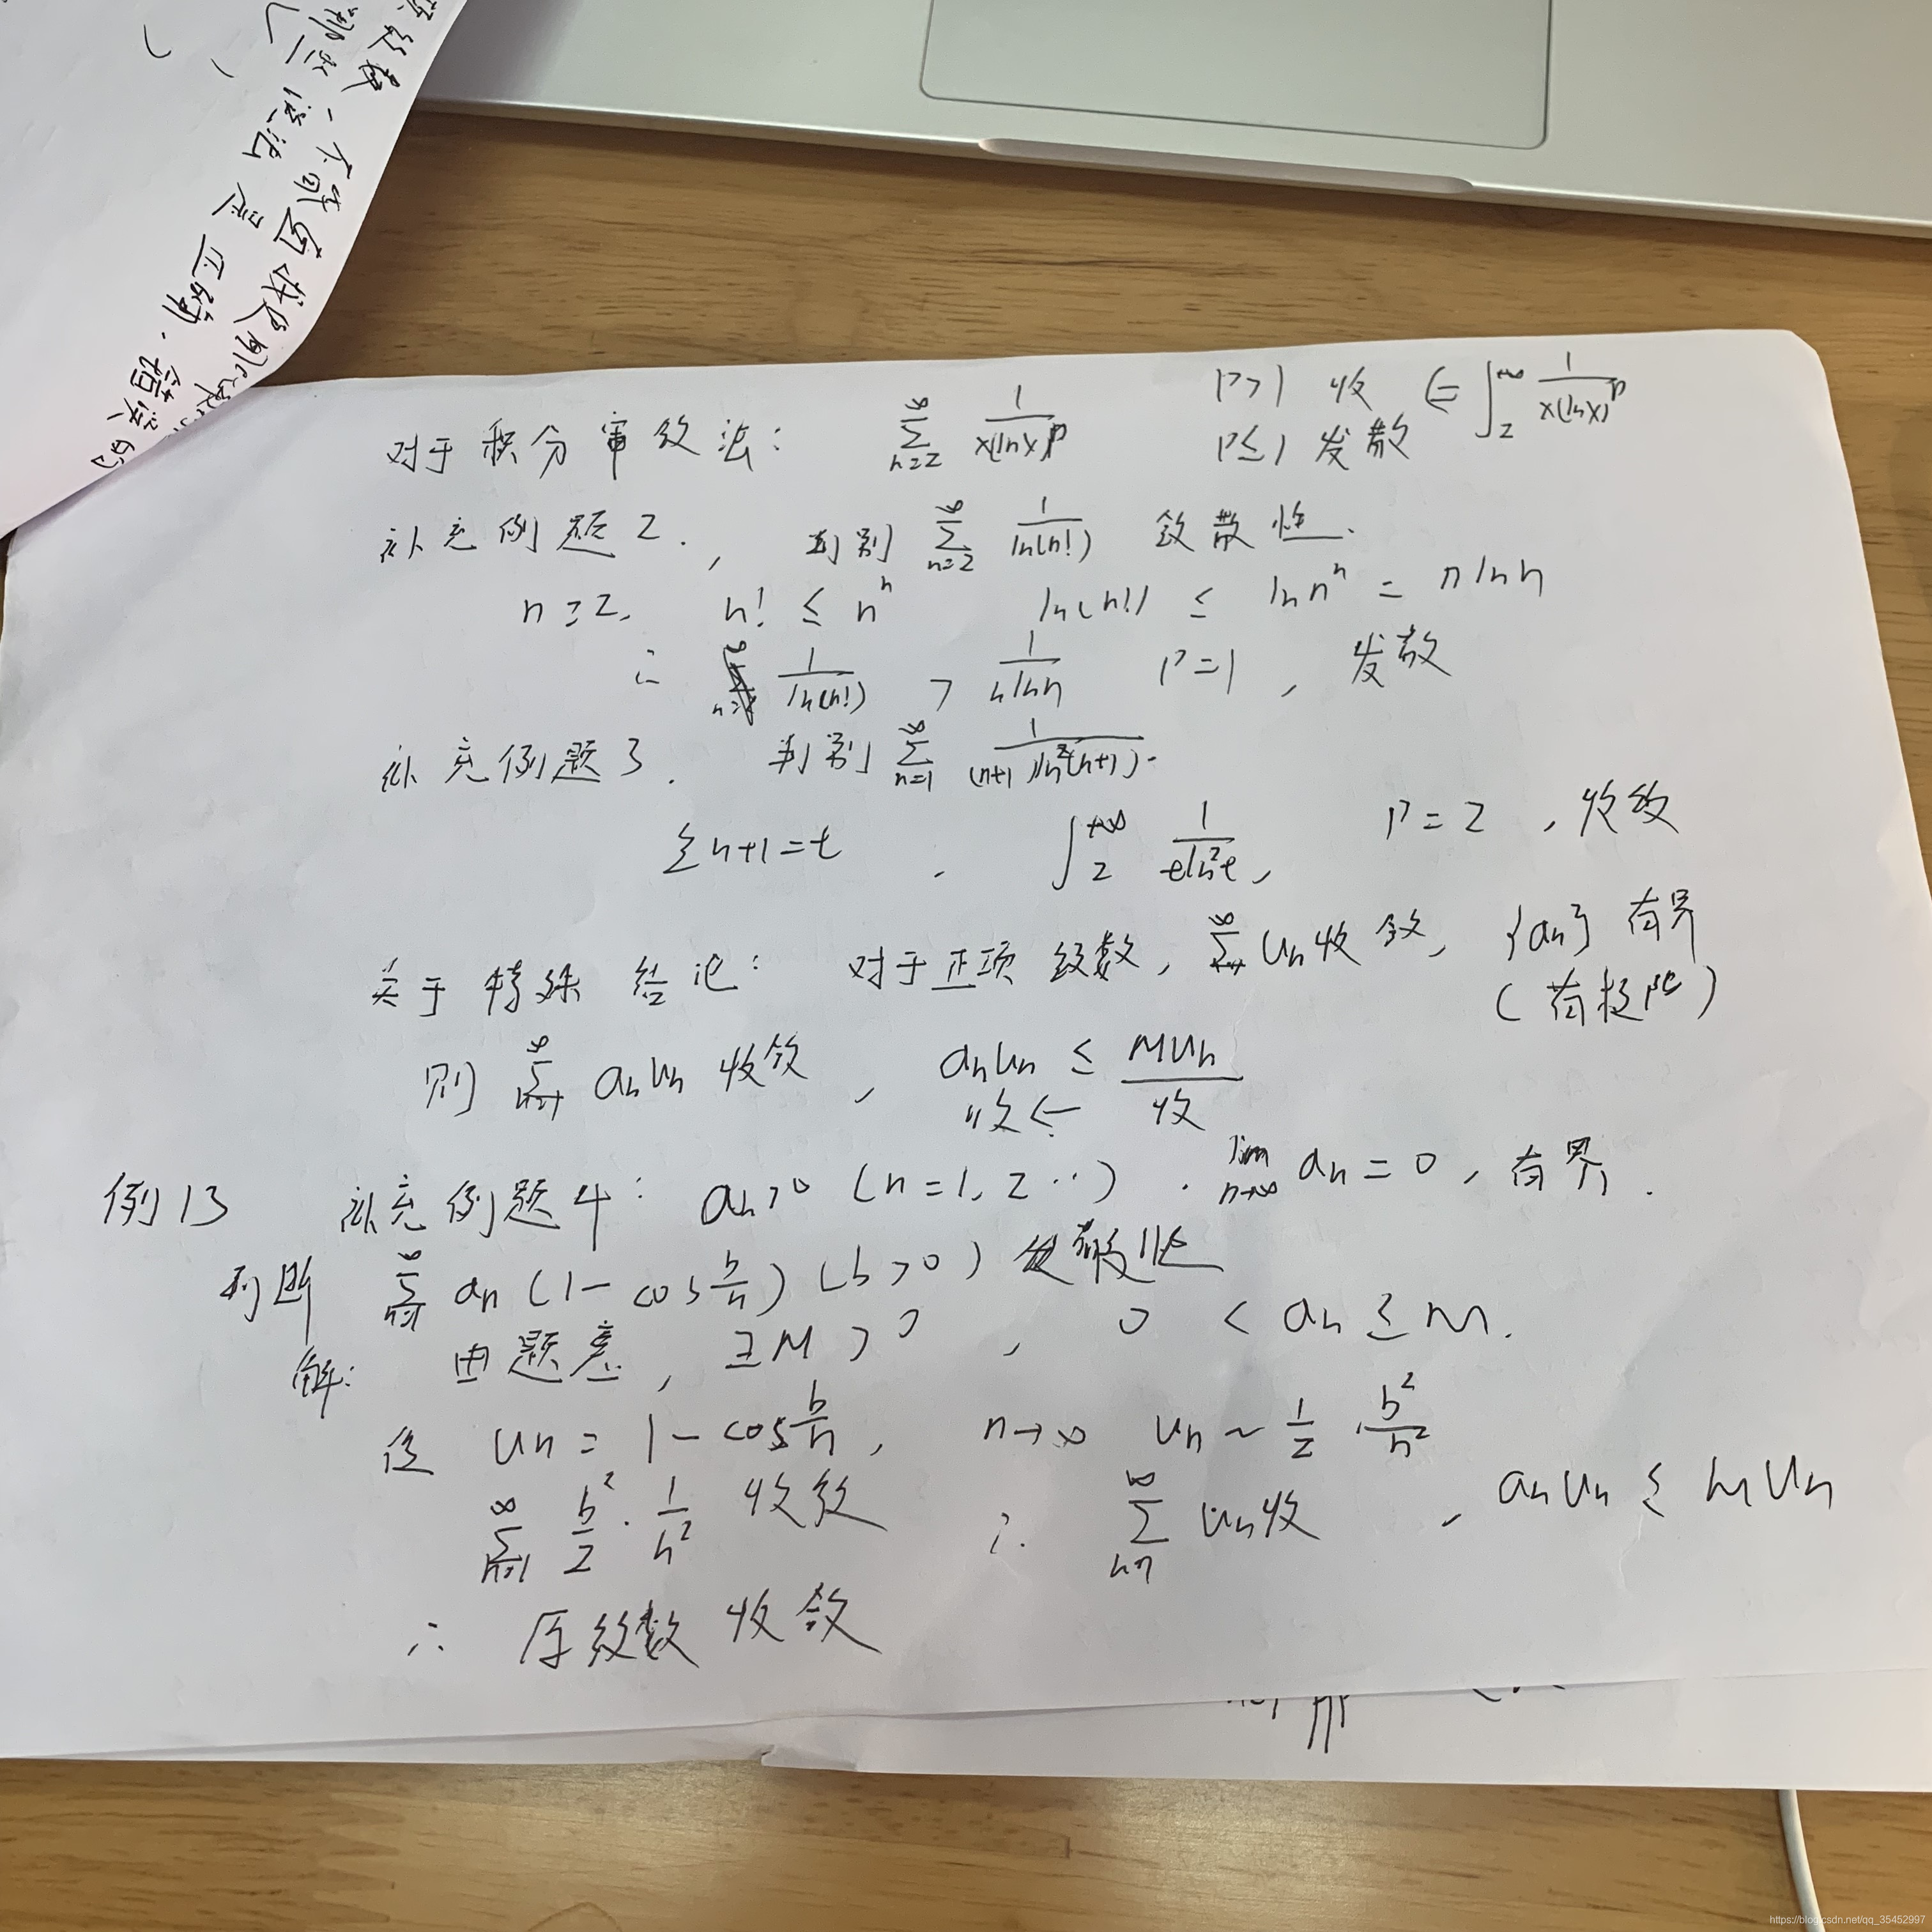 对于积分审敛法: ∑_{n=2}^{∞} 1/(x(lnx)^p) P>1 收 ⇐ ∫_2^{+∞} 1/(x(lnx)^p)
P≤1 发散
补充例题2. , 判别 ∑_{n=2}^{∞} 1/ln(n!) 敛散性.
n≥2, n! ≤ n^n ln(n!) ≤ ln n^n = n ln n
∴ 1/ln(n!) > 1/(n ln n) P=1 , 发散
补充例题3. 判别 ∑_{n=1}^{∞} 1/((n+1)ln²(n+1)).
令 n+1=t , ∫_2^{+∞} 1/(t ln²t), P=2 , 收敛
关于特殊结论: 对于正项级数, ∑_{n=1}^{∞} u_n 收敛, {a_n} 有界
(有极限)
则 ∑_{n=1}^{∞} a_n u_n 收敛 , a_n u_n ≤ M u_n
收 ⇐ 收
例13 补充例题4: a_n>0 (n=1,2…) . lim_{n→∞} a_n = 0, 有界.
判断 ∑_{n=1}^{∞} a_n (1-cos b/n) (b>0) 散性
解: 由题意, ∃M>0 , 0 < a_n ≤ M.
设 u_n = 1-cos b/n, n→∞ u_n ~ 1/2 · b²/n²
∑_{n=1}^{∞} b²/2 · 1/n² 收敛 ∴ ∑_{n=1}^{∞} u_n 收 , a_n u_n ≤ M u_n
∴ 原级数收敛
https://blog.csdn.net/qq_35452997